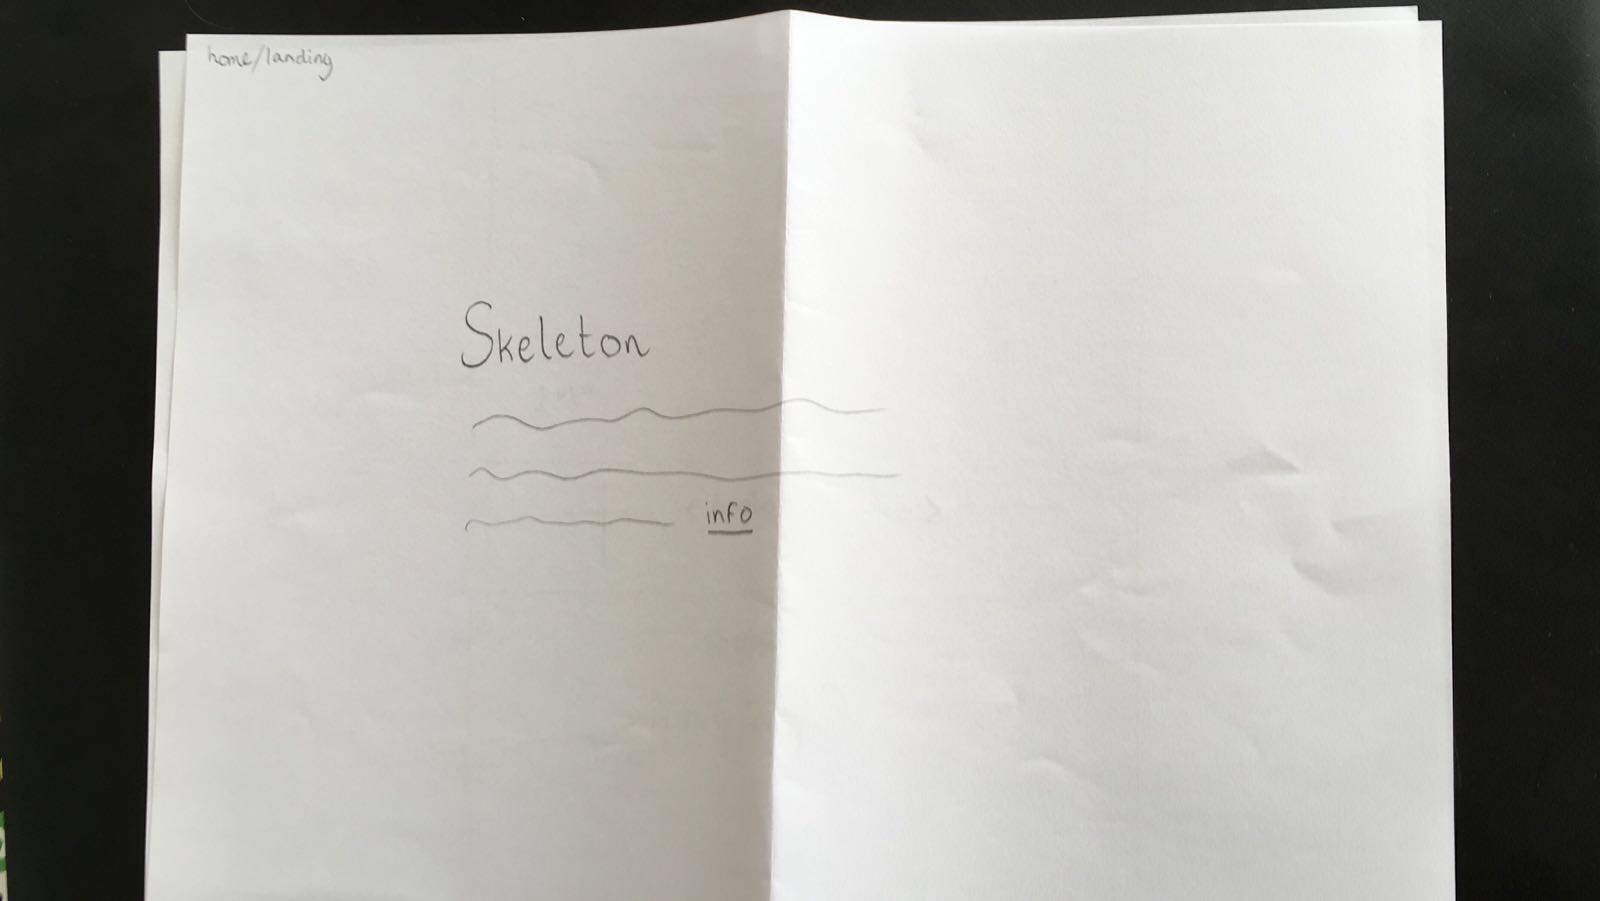 home/landing
Skeleton
info